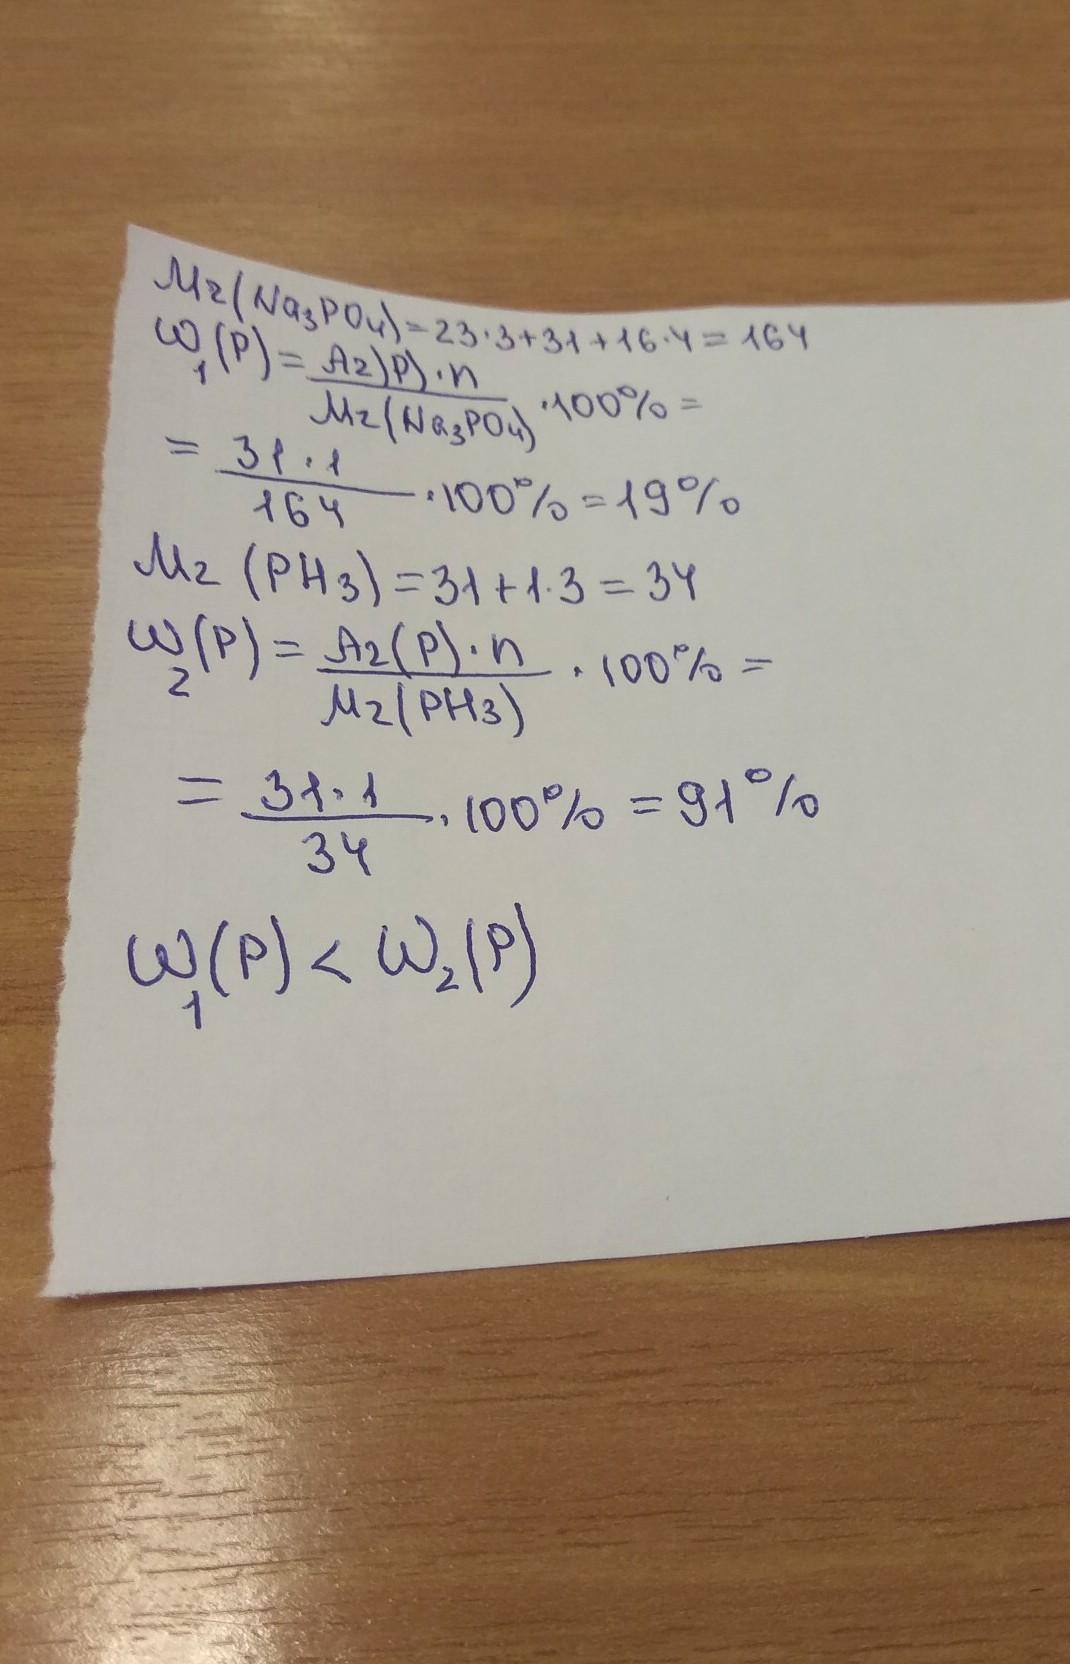 Mr(Na₃PO₄)=23·3+31+16·4=164
ω₁(P)=Ar)P)·n/Mr(Na₃PO₄)·100%=
=31·1/164·100%=19%
Mr(PH₃)=31+1·3=34
ω₂(P)=Ar(P)·n/Mr(PH₃)·100%=
=31·1/34·100%=91%
ω₁(P)<ω₂(P)